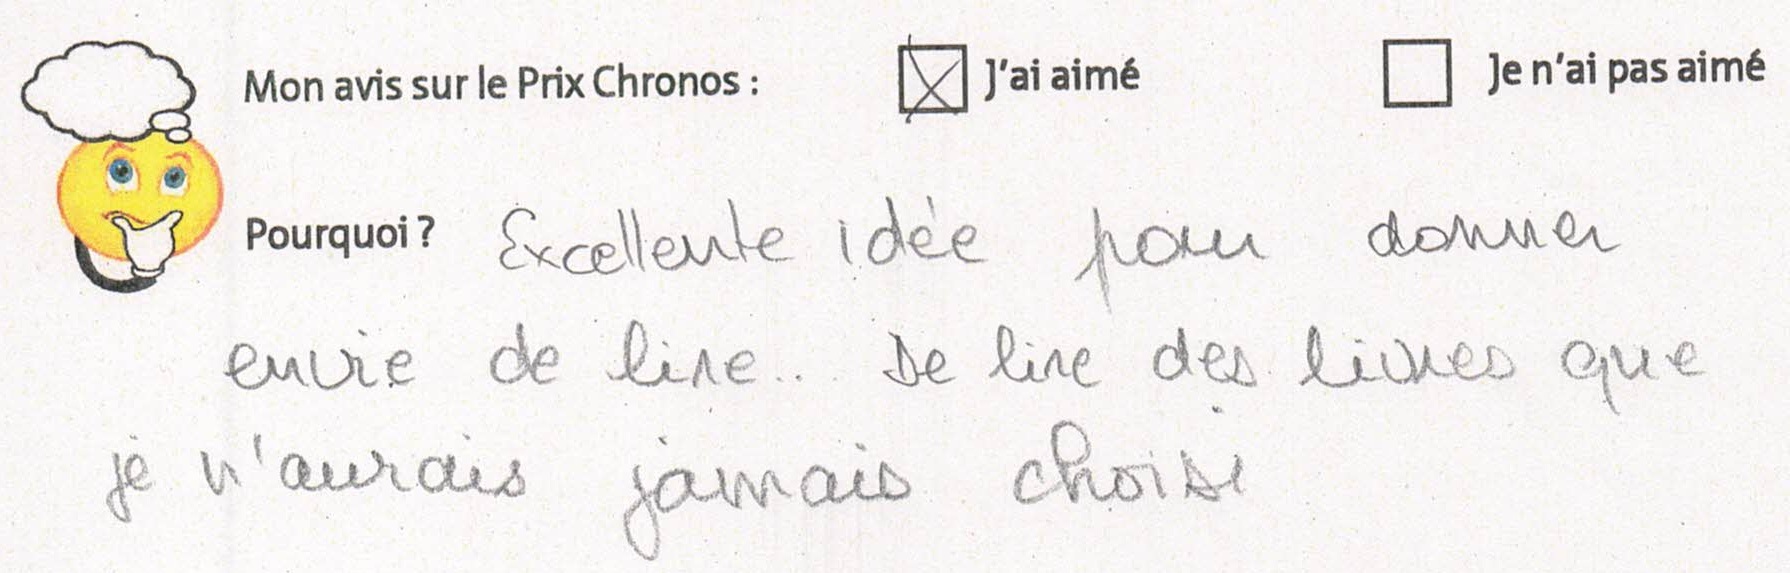 Mon avis sur le Prix Chronos : ☒ J'ai aimé ☐ Je n'ai pas aimé
Pourquoi ? Excellente idée pour donner
envie de lire... De lire des livres que
je n'aurais jamais choisi